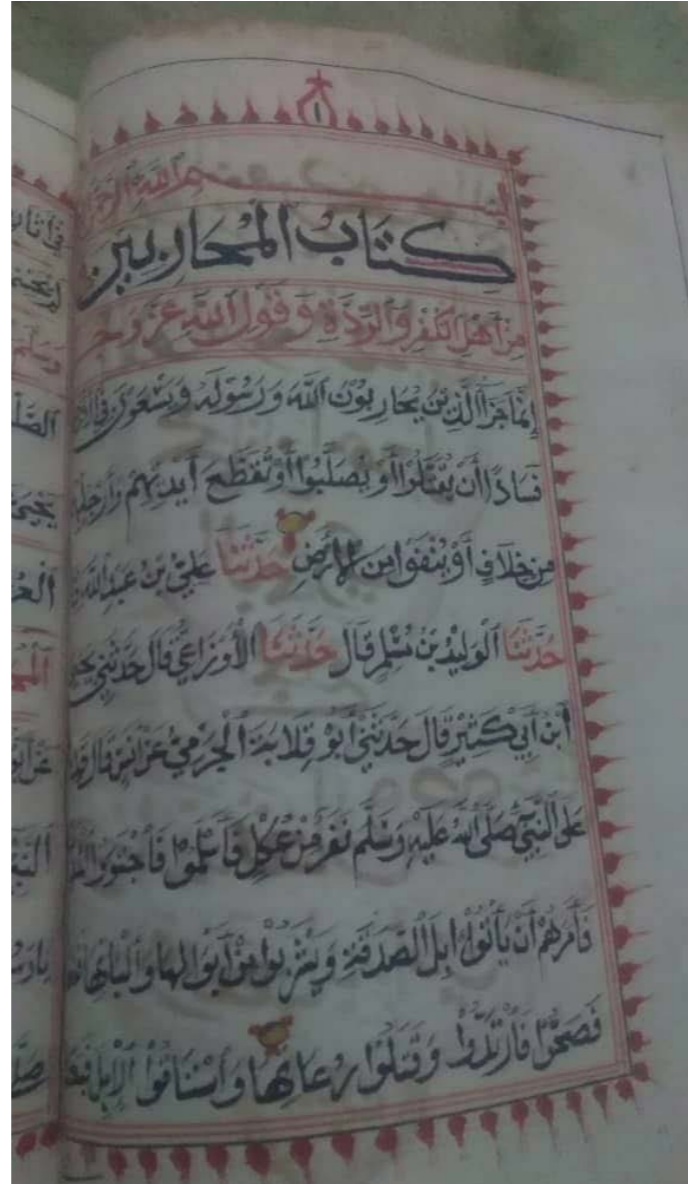 ١
بسم الله الرحمن
كتاب المحاربين
من أهل الكفر والردة وقول الله عز وجل
إنما جزاء الذين يحاربون الله ورسوله ويسعون في الأرض
فسادا أن يقتلوا أو يصلبوا أو تقطع أيديهم وأرجلهم
من خلاف أو ينفوا من الأرض حدثنا علي بن عبد الله
حدثنا الوليد بن مسلم قال حدثنا الأوزاعي قال حدثني يحيى
ابن أبي كثير قال حدثني أبو قلابة الجرمي عن أنس قال قدم
على النبي صلى الله عليه وسلم نفر من عكل فأسلموا فاجتووا
فأمرهم أن يأتوا إبل الصدقة ويشربوا من أبوالها وألبانها
فصحوا فارتدوا وقتلوا رعاتها واستاقوا الإبل